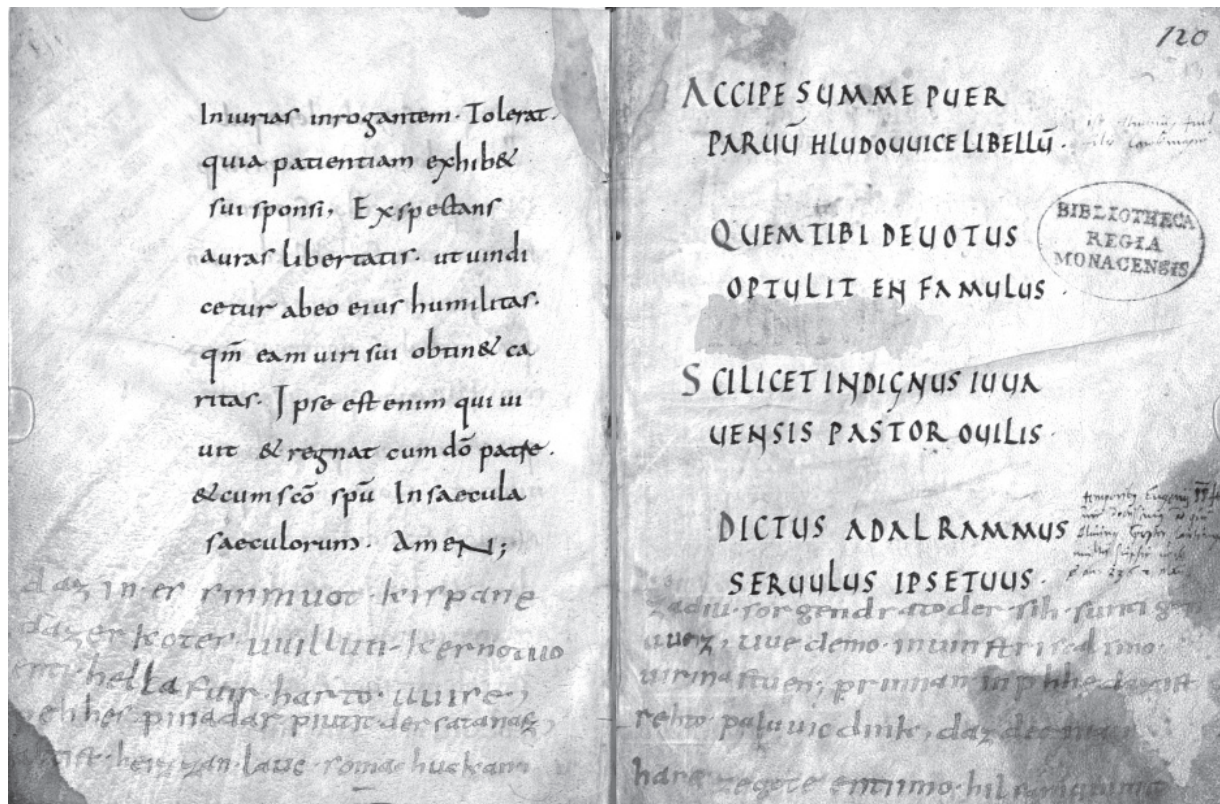 Iniurias inrogantem· Tolerat·
quia patientiam exhib&
sui sponsi, Exspectans
auras libertatis· ut uindi
cetur abeo eius humilitas·
qm̄ eam uiri sui obtin& ca
ritas· Ipse est enim qui ui
uit & regnat cum dō patre·
&cum scō spū Insaecula
saeculorum· AMEN;
daz, in·er sinmuot·kispane
daz er kotes· uuillun·kerno tuo
enti·hella fuir·harto·uuise,
pehhes pinadar piutit der satanasz,
heizzan·lauc·
120
ACCIPE SUMME PUER
PARUŪ HLUDOUUICE LIBELLŪ·
QUEM TIBI DEUOTUS
OPTULIT EN FAMULUS·
SCILICET INDIGNUS IUUA
UENSIS PASTOR OUILIS·
DICTUS ADALRAMMUS
SERUULUS IPSE TUUS·
BIBLIOTHECA
REGIA
MONACENSIS
sorgen drato der·sih·suntigen
uueiz, uue demo·in uinstri scal·imo·
uirina stuen; prinnan in pehhe daz ist
rehto·paluuic dink, daz der man
haret ze gote enti imo·hilfa ni quimit